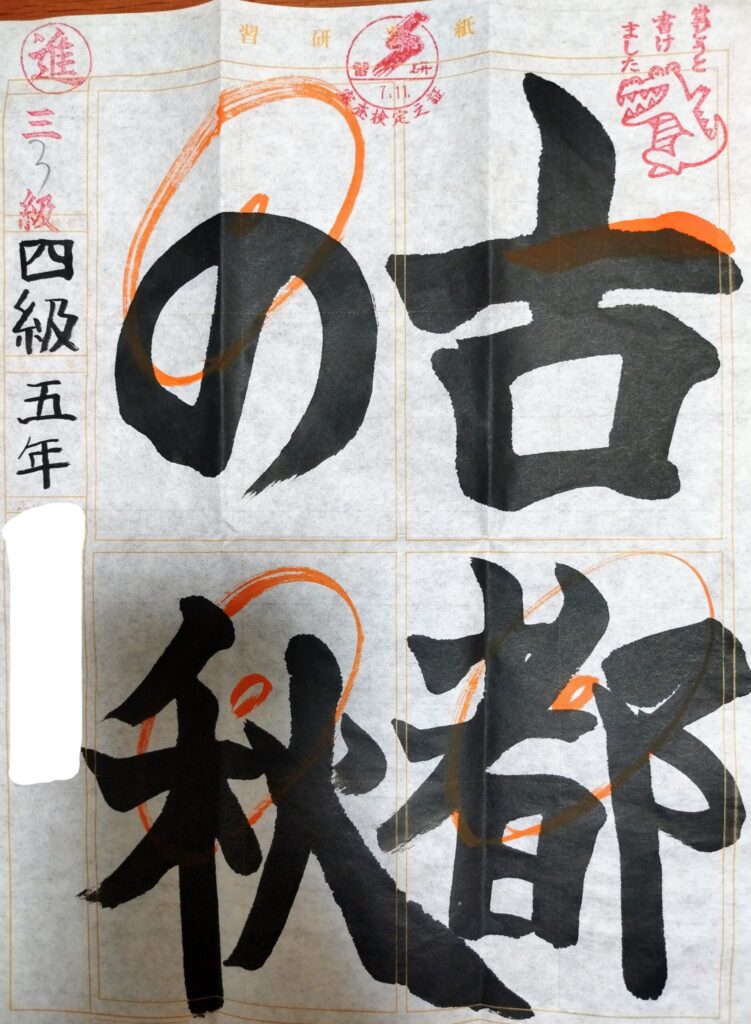 習研 紙
古都
の秋
進
三級
3
四級 五年
習研
7.11.
検定之証
堂々と
書け
ました